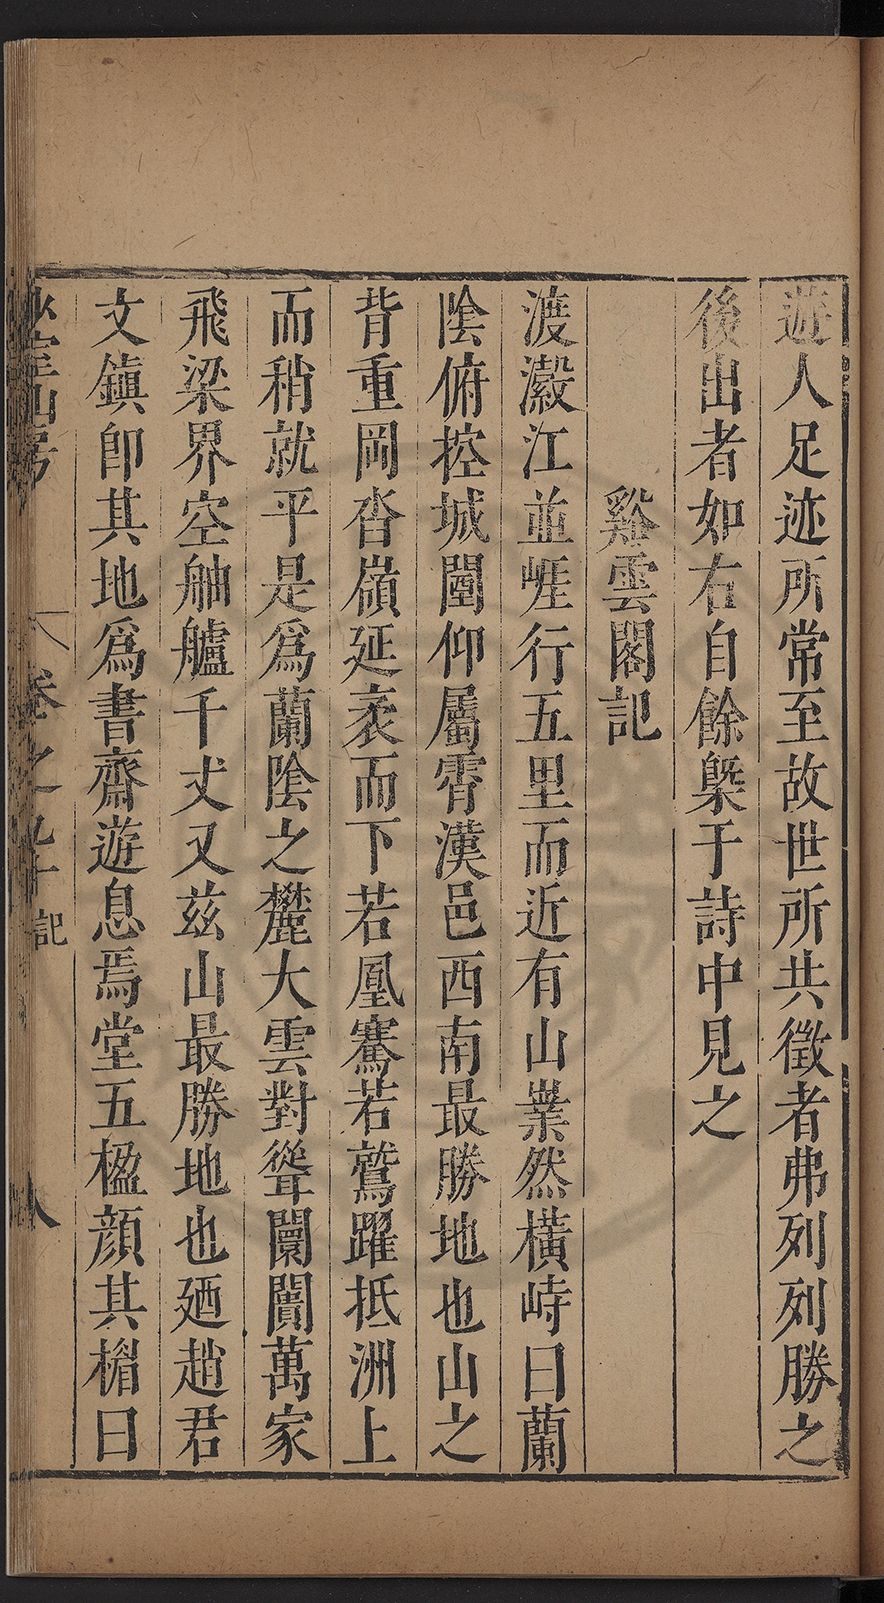 遊人足迹所常至故世所共徵者弗列列勝之
後出者如右自餘槩于詩中見之
谿雲閣記
渡瀫江並崕行五里而近有山業然橫峙曰蘭
陰俯控城闉仰屬霄漢邑西南最勝地也山之
背重岡沓嶺延袤而下若凰騫若鷲躍抵洲上
而稍就平是爲蘭陰之麓大雲對聳闤闠萬家
飛梁界空舳艫千丈又茲山最勝地也廼趙君
文鎮卽其地爲書齋遊息焉堂五楹顏其楣曰
山房 卷之九十 記 八